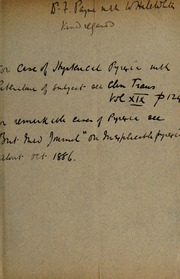 Dr F. Payne with W Hale White
Kind regards
For Case of Hysterical Pyrexia with
Literature of subject see Clin Trans
Vol XIX p 124
For remarkable cases of Pyrexia see
Brit Med Journal "on Inexplicable pyrexia
about Oct 1886.